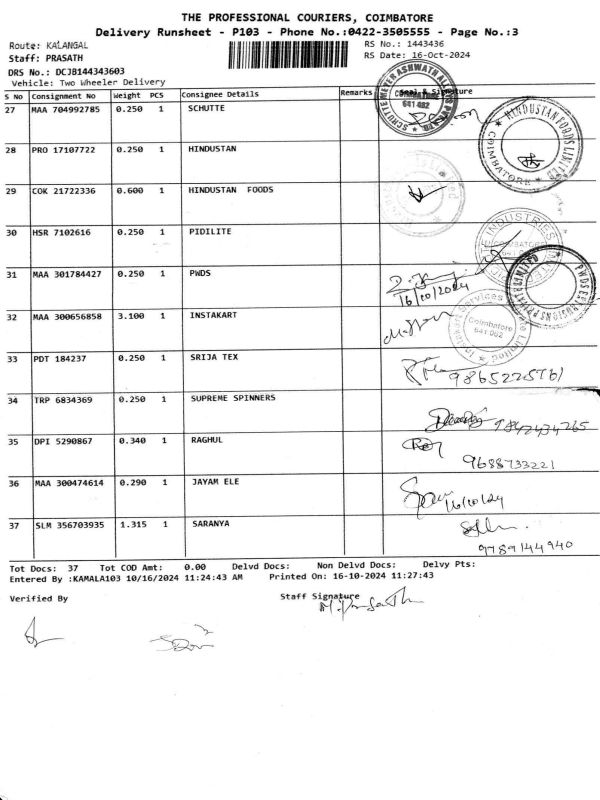 THE PROFESSIONAL COURIERS, COIMBATORE
Delivery Runsheet - P103 - Phone No.:0422-3505555 - Page No.:3
Route: KALANGAL RS No.: 1443436
Staff: PRASATH RS Date: 16-Oct-2024
DRS No.: DCJB144343603
Vehicle: Two Wheeler Delivery
S No Consignment No Weight PCS Consignee Details Remarks Seal & Signature
27 MAA 704992785 0.250 1 SCHUTTE
COIMBATORE
641 082
28 PRO 17107722 0.250 1 HINDUSTAN
HINDUSTAN FOODS LIMITED
COIMBATORE
29 COK 21722336 0.600 1 HINDUSTAN FOODS
30 HSR 7102616 0.250 1 PIDILITE
INDUSTRIES
COIMBATORE
31 MAA 301784427 0.250 1 PWDS
16/10/2024
32 MAA 300656858 3.100 1 INSTAKART
Services
Coimbatore
641 082
Limited
33 PDT 184237 0.250 1 SRIJA TEX
34 TRP 6834369 0.250 1 SUPREME SPINNERS
9842434265
35 DPI 5290867 0.340 1 RAGHUL
9688733221
36 MAA 300474614 0.290 1 JAYAM ELE
16/10/24
37 SLM 356703935 1.315 1 SARANYA
9789144940
Tot Docs: 37 Tot COD Amt: 0.00 Delvd Docs: Non Delvd Docs: Delvy Pts:
Entered By :KAMALA103 10/16/2024 11:24:43 AM Printed On: 16-10-2024 11:27:43
Verified By Staff Signature